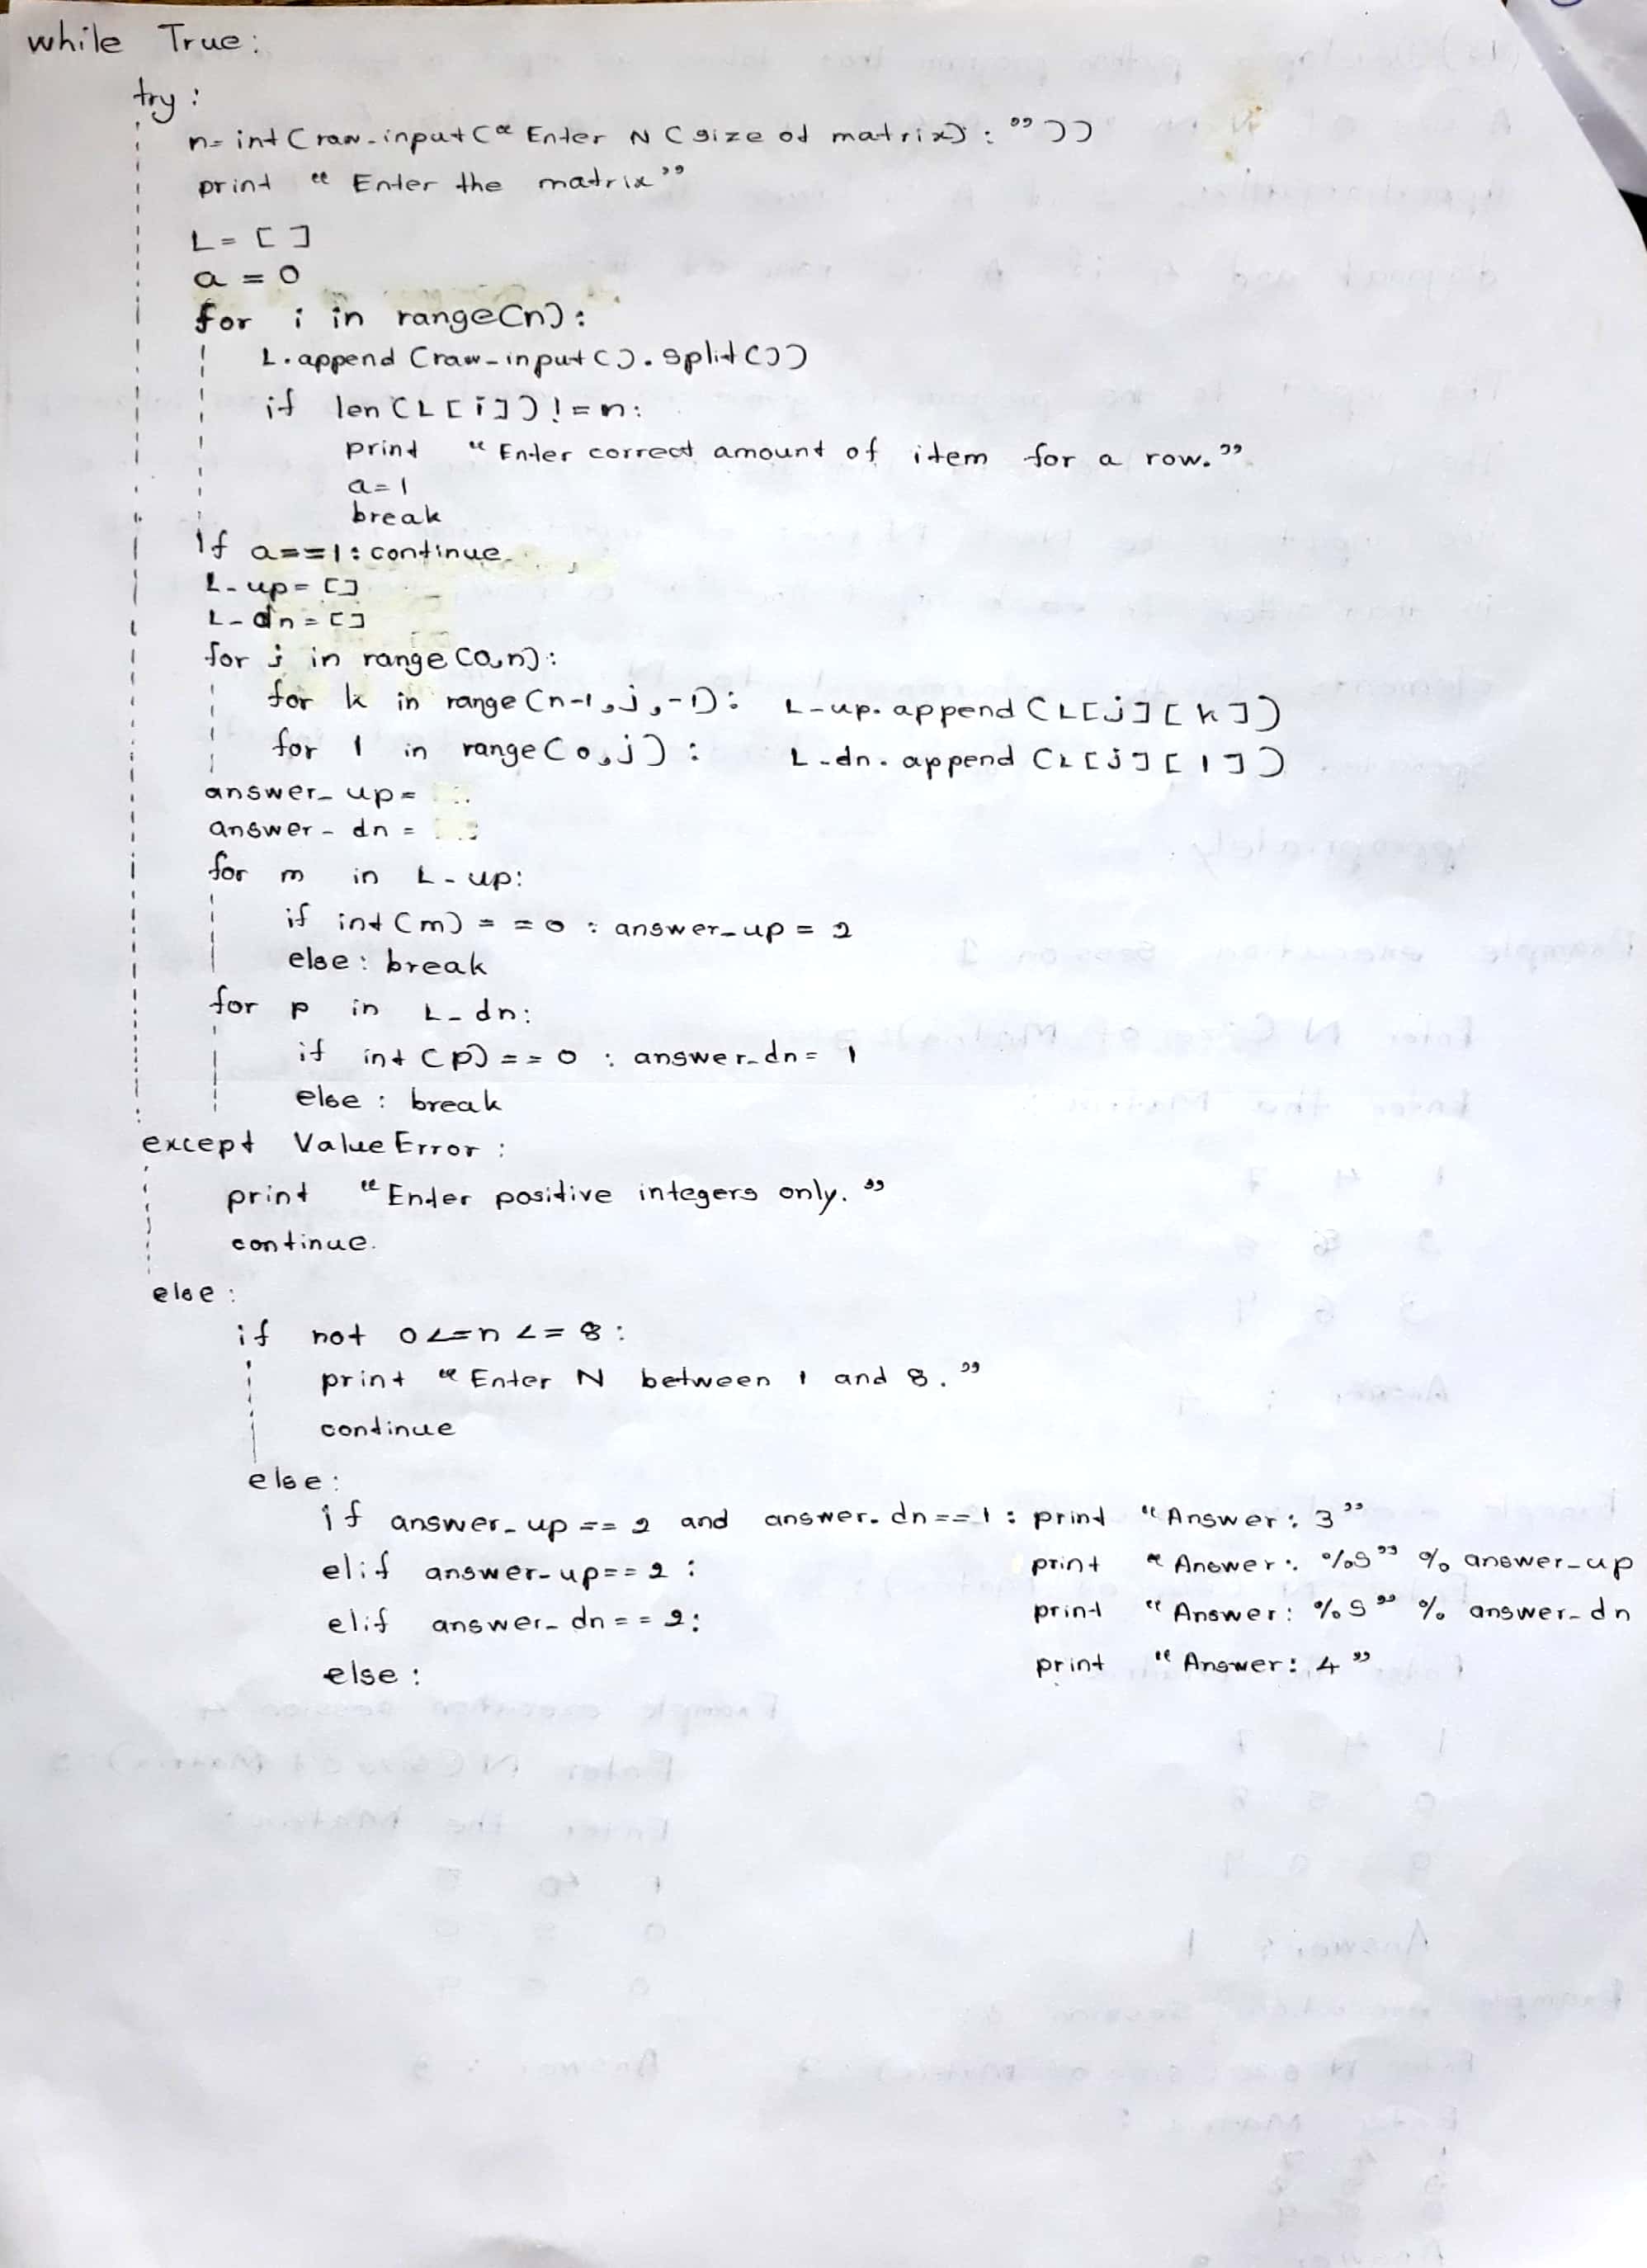 while True:
try:
n= int(raw_input(“Enter N (size of matrix): ”))
print “Enter the matrix”
L=[]
a=0
for i in range(n):
L.append(raw_input().split())
if len(L[i])!=n:
print “Enter correct amount of item for a row.”
a=1
break
If a==1: continue
L_up=[]
L_dn=[]
for j in range(0,n):
for k in range(n-1,j,-1): L_up.append(L[j][k])
for l in range(0,j): L_dn.append(L[j][l])
answer_up=
answer_dn=
for m in L_up:
if int(m)==0 : answer_up = 2
else: break
for p in L_dn:
if int(p)==0 : answer_dn= 1
else : break
except ValueError :
print “Enter positive integers only.”
continue.
else :
if not 0<=n<=8 :
print “Enter N between 1 and 8.”
continue
else:
if answer_up==2 and answer_dn==1 : print “Answer: 3”
elif answer_up==2 : print “Answer: %s” % answer_up
elif answer_dn==2: print “Answer: %s” % answer_dn
else : print “Answer: 4”